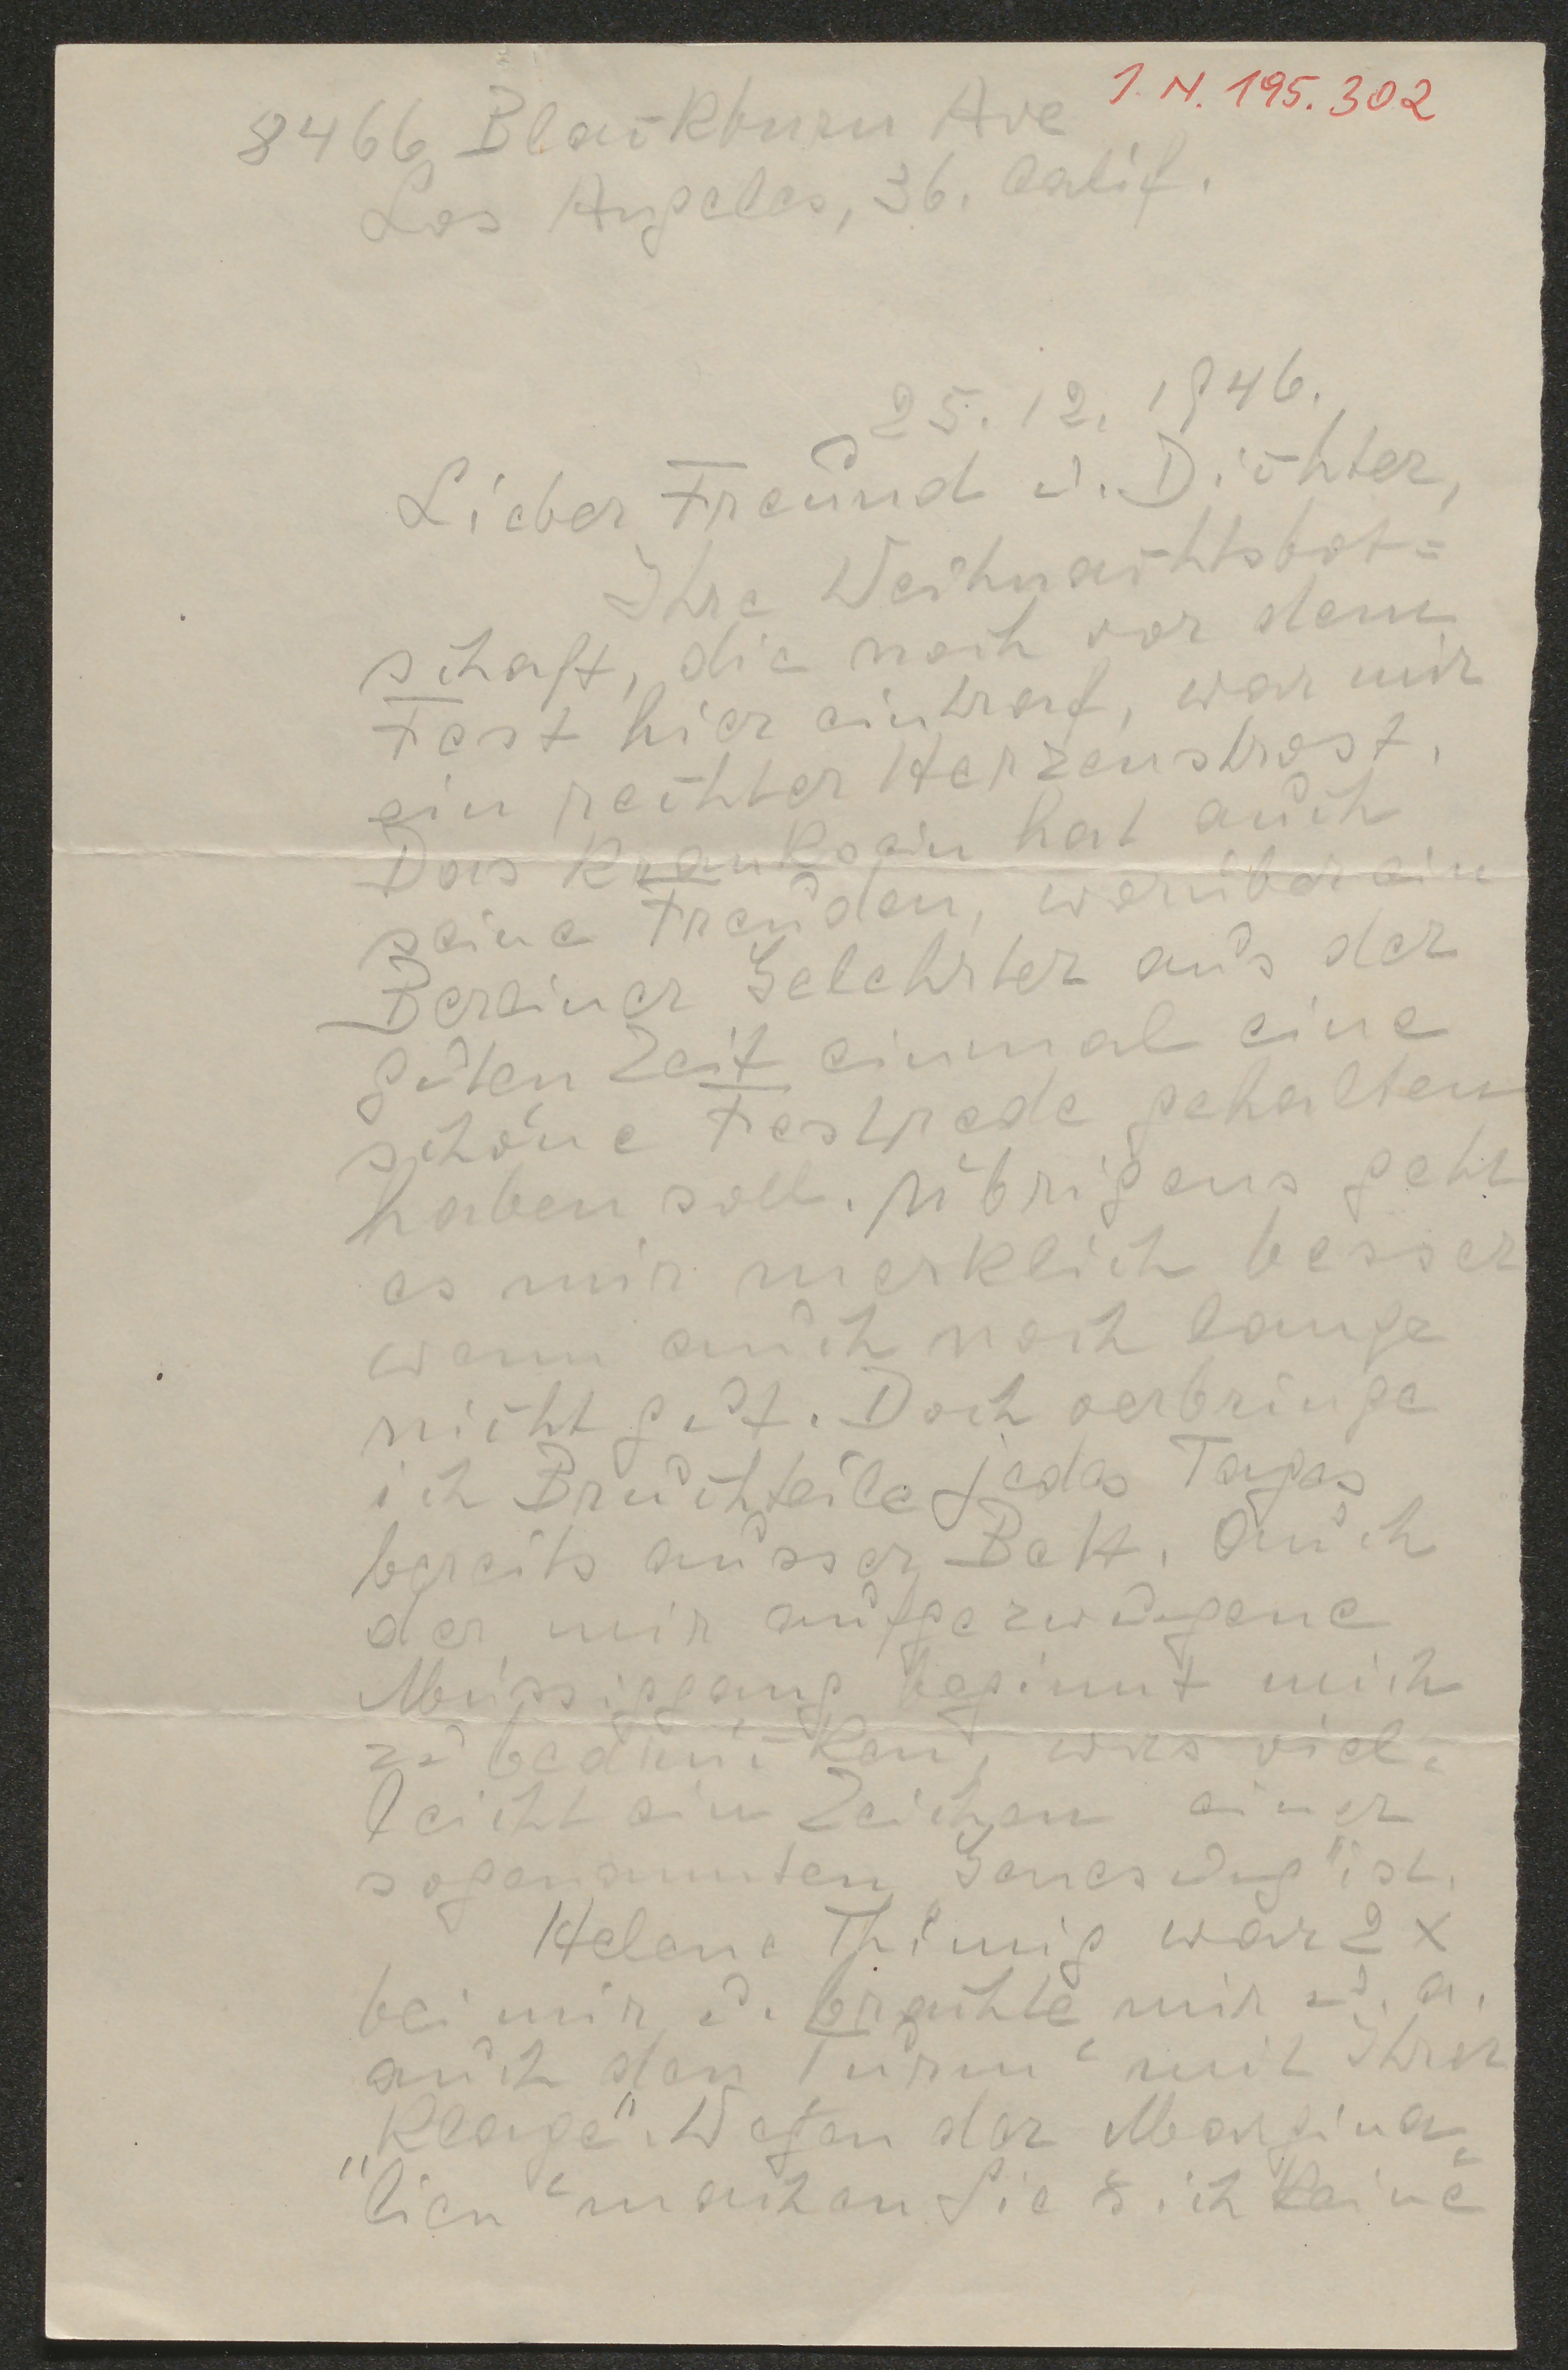 I. N. 195.302
8466 Blackburn Ave
Los Angeles, 36. Calif.
25. 12. 1946.
Lieber Freund u. Dichter,
Ihre Weihnachtsbot=
schaft, die noch vor dem
Fest hier eintraf, war mir
ein rechter Herzenstrost.
Das Kranksein hat auch
seine Freuden, worüber ein
Gelehrter aus der
guten Zeit einmal eine
schöne Festrede gehalten
haben soll. Übrigens geht
es mir merklich besser
wenn auch noch lange
nicht gut. Doch verbringe
ich Bruchteile jedes Tages
bereits ausser Bett. Auch
der mir aufgezwungene
Müssiggang beginnt mich
zu bedrücken, was viel=
leicht ein Zeichen einer
sogenannten Genesung" ist.
Helene Thimig war 2 x
bei mir u. brachte mir u. a.
auch den Turm“ mit Ihrer
„Klage". Wegen der Margina
„lien“ machen Sie sich keine